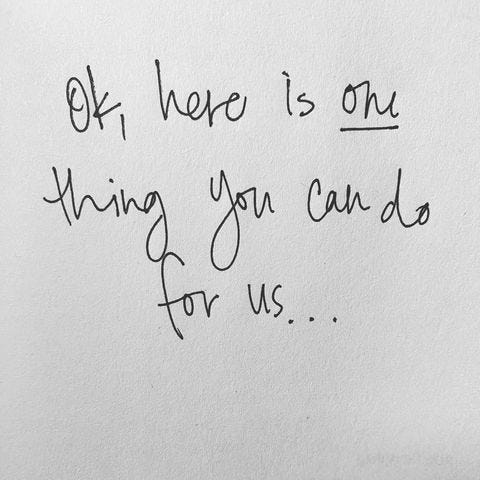 Ok, here is one
thing you can do
for us...